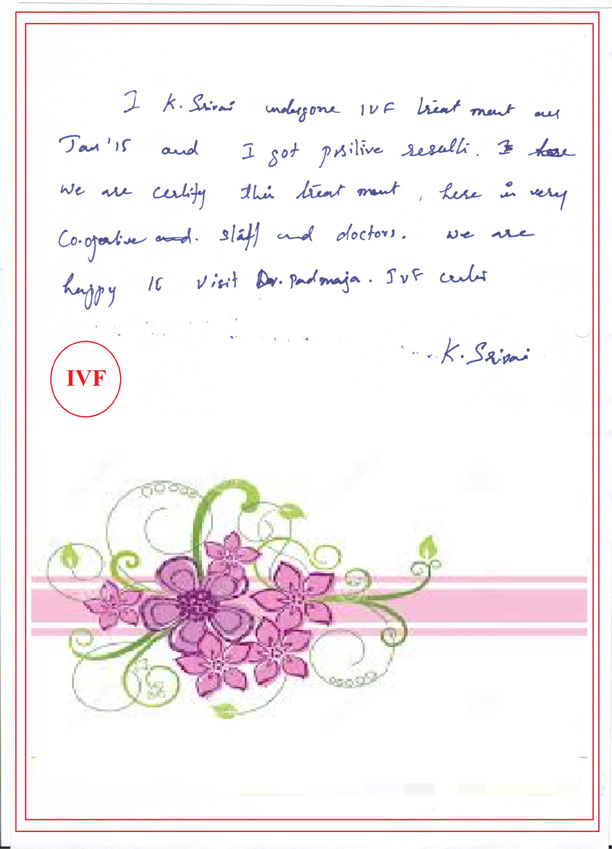 I K. Srivai undergone IVF treat ment
Jan'15 and I got positive results.
we are certify this treat ment, here is very
Co-operative and. staff and doctors. we are
happy to visit Dr. Padmaja. IVF center
K. Srivai
IVF